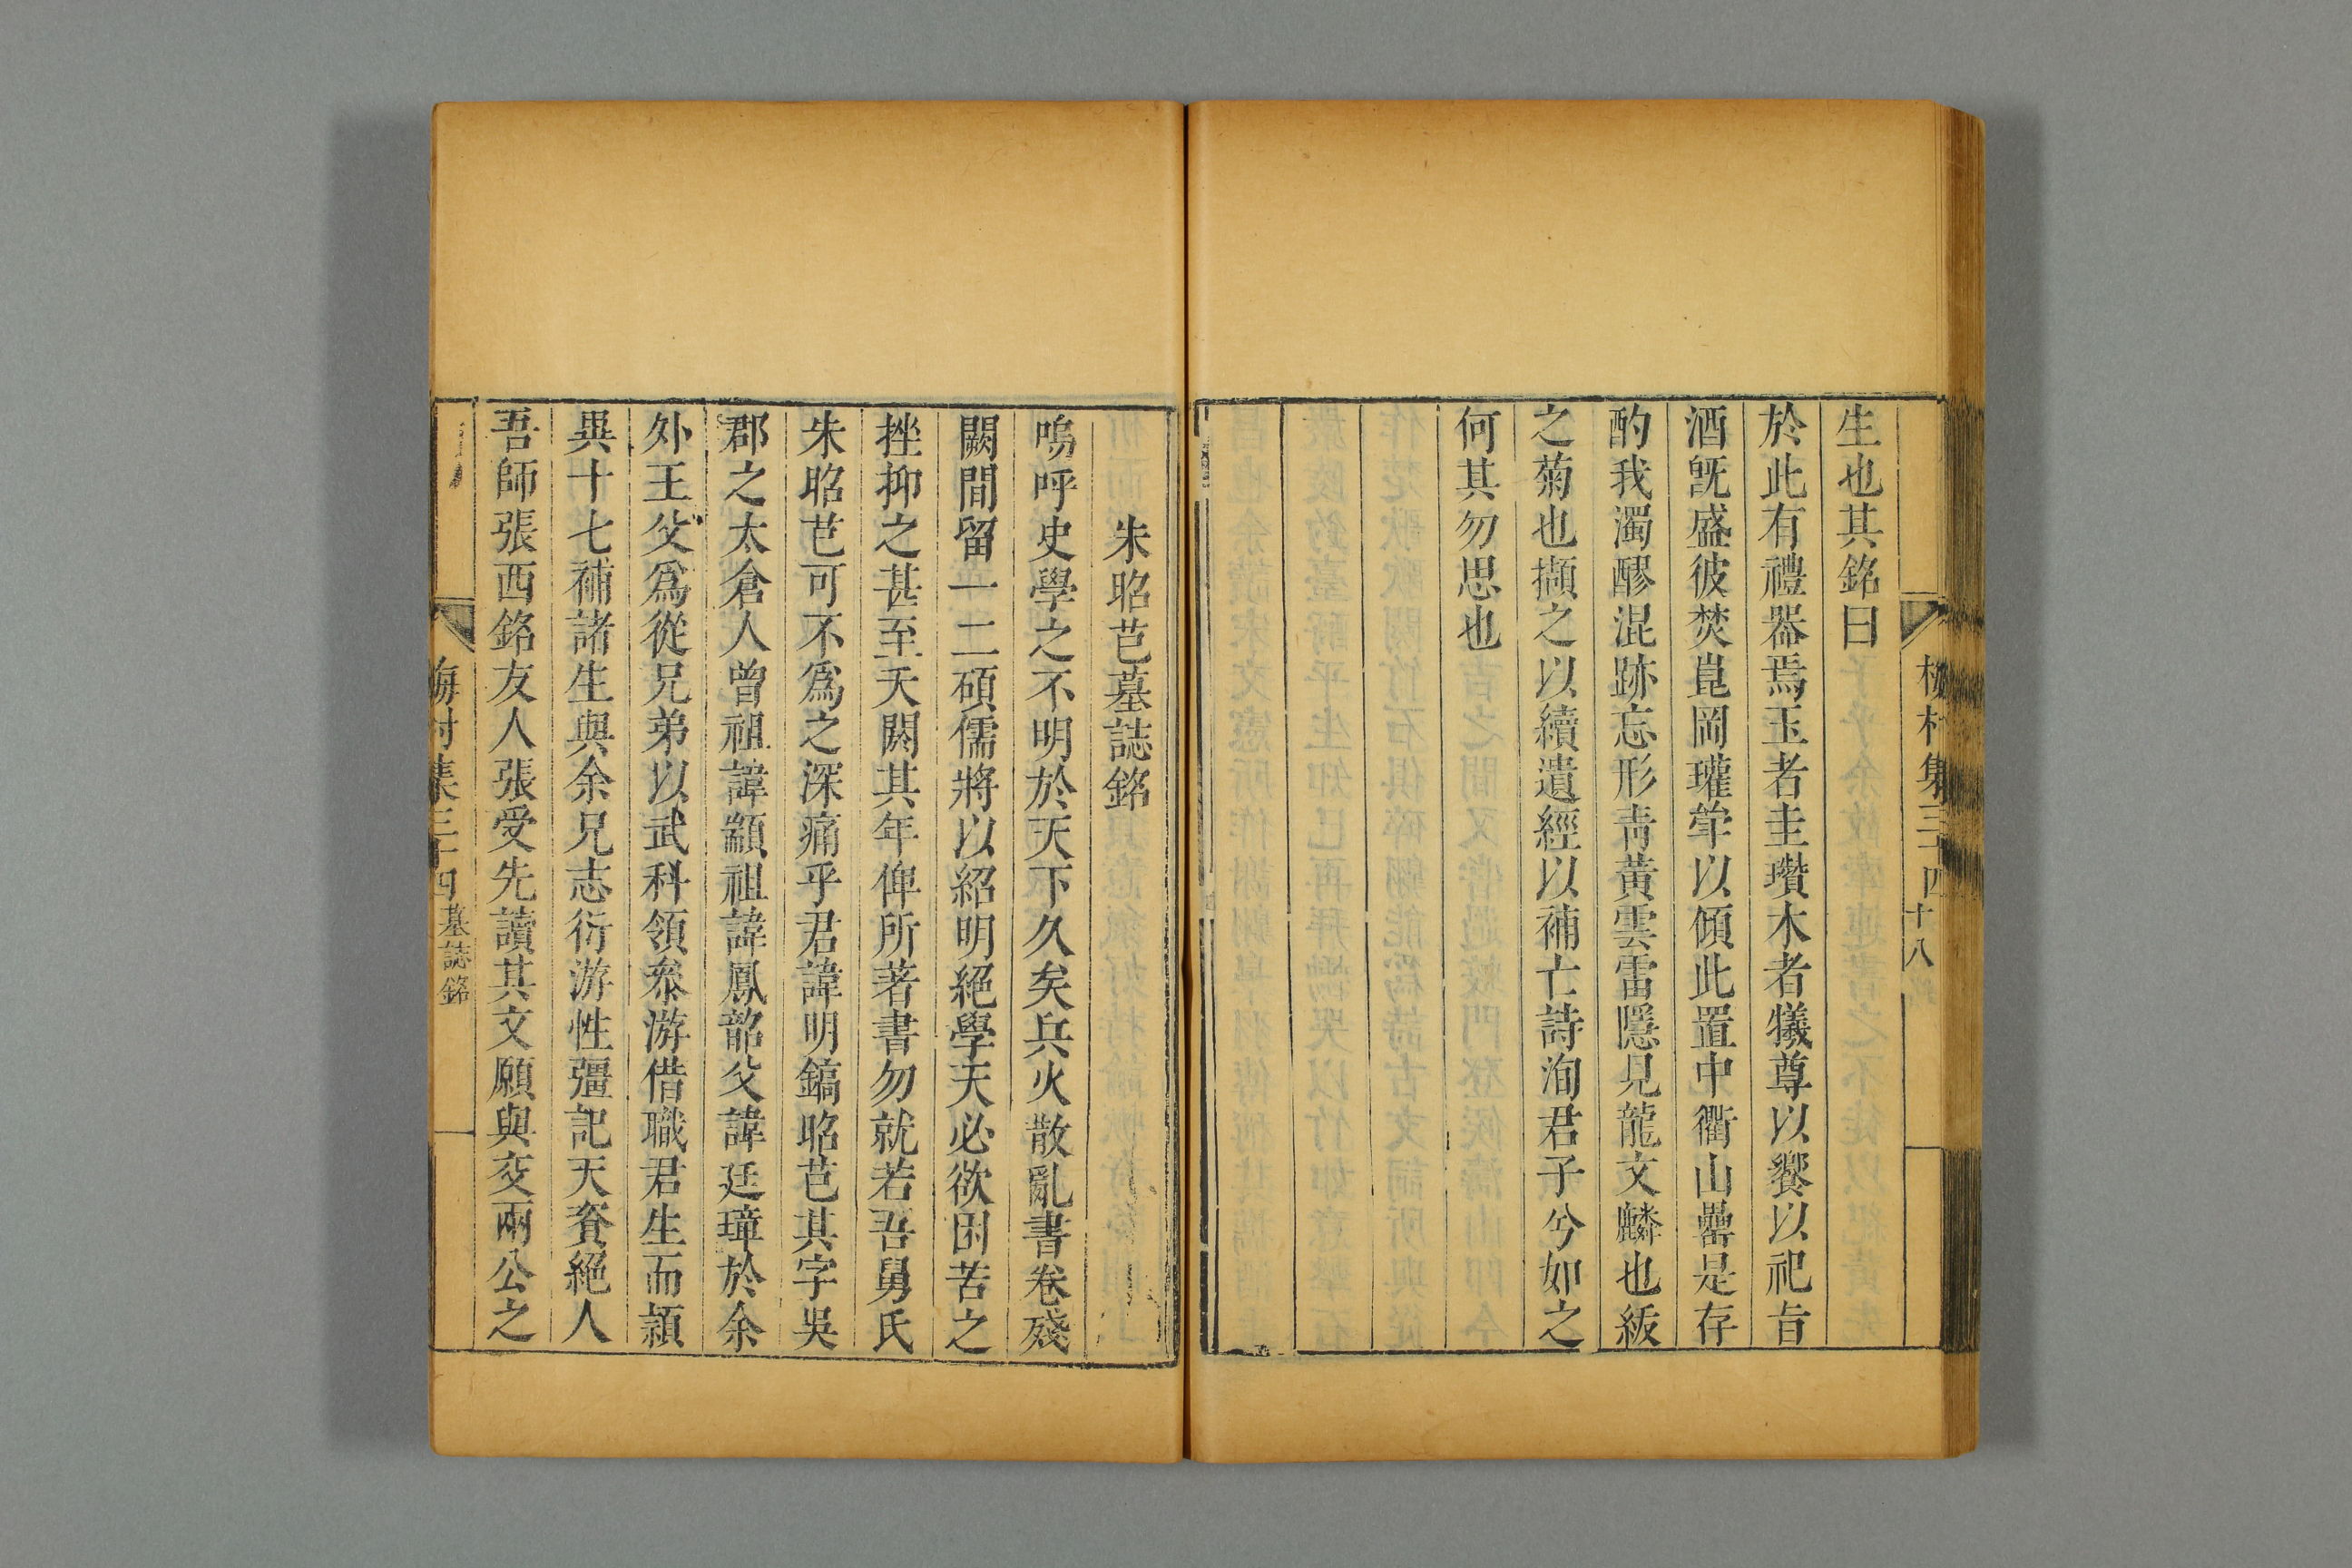 梅村集三十四
十八
生也其銘曰
於此有禮器焉玉者圭瓚木者犧尊以饗以祀旨
酒旣盛彼焚崑岡瓘斝以傾此置中衢山罍是存
酌我濁醪混跡忘形靑黃雲雷隱見龍文麟也紱
之菊也擷之以續遺經以補亡詩洵君子兮如之
何其勿思也
朱昭芑墓誌銘
嗚呼史學之不明於天下久矣兵火散亂書卷殘
闕間留一二碩儒將以紹明絕學天必欲困苦之
挫抑之甚至夭閼其年俾所著書勿就若吾舅氏
朱昭芑可不爲之深痛乎君諱明鎬昭芑其字吳
郡之太倉人曾祖諱顓祖諱鳳韶父諱廷璋於余
外王父爲從兄弟以武科領叅游借職君生而穎
異十七補諸生與余兄志衍游性彊記天資絕人
吾師張西銘友人張受先讀其文願與交兩公之
梅村集三十四
墓誌銘